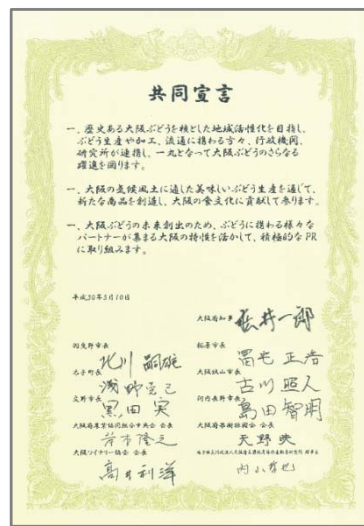 共同宣言
一、歴史ある大阪ぶどうを核とした地域活性化を目指し、
ぶどう生産や加工、流通に携わる方々、行政機関、
研究所が連携し、一丸となって大阪ぶどうのさらなる
躍進を図ります。
一、大阪の気候風土に適した美味しいぶどう生産を通じて、
新たな商品を創造し、大阪の食文化に貢献して参ります。
一、大阪ぶどうの未来創出のため、ぶどうに携わる様々な
パートナーが集まる大阪の特性を活かして、積極的なPR
に取り組みます。
平成30年5月10日
大阪府知事 松井一郎
羽曳野市長 柏原市長
北川嗣雄 冨宅正浩
太子町長 大阪狭山市長
浅野克己 古川照人
交野市長 河内長野市長
黒田実 島田智明
大阪府農業協同組合中央会 会長 大阪府果樹振興会 会長
天野映
大阪ワイナリー協会 会長
高井利洋 内山哲也